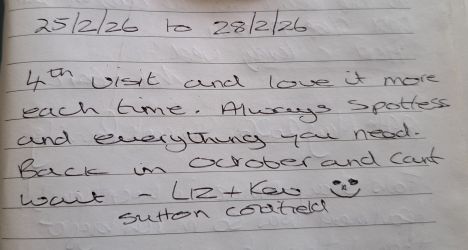 25/2/26 to 28/2/26
4th visit and love it more
each time. Always spotless
and everything you need.
Back in October and cant
wait - Liz + Kev
Sutton Coldfield